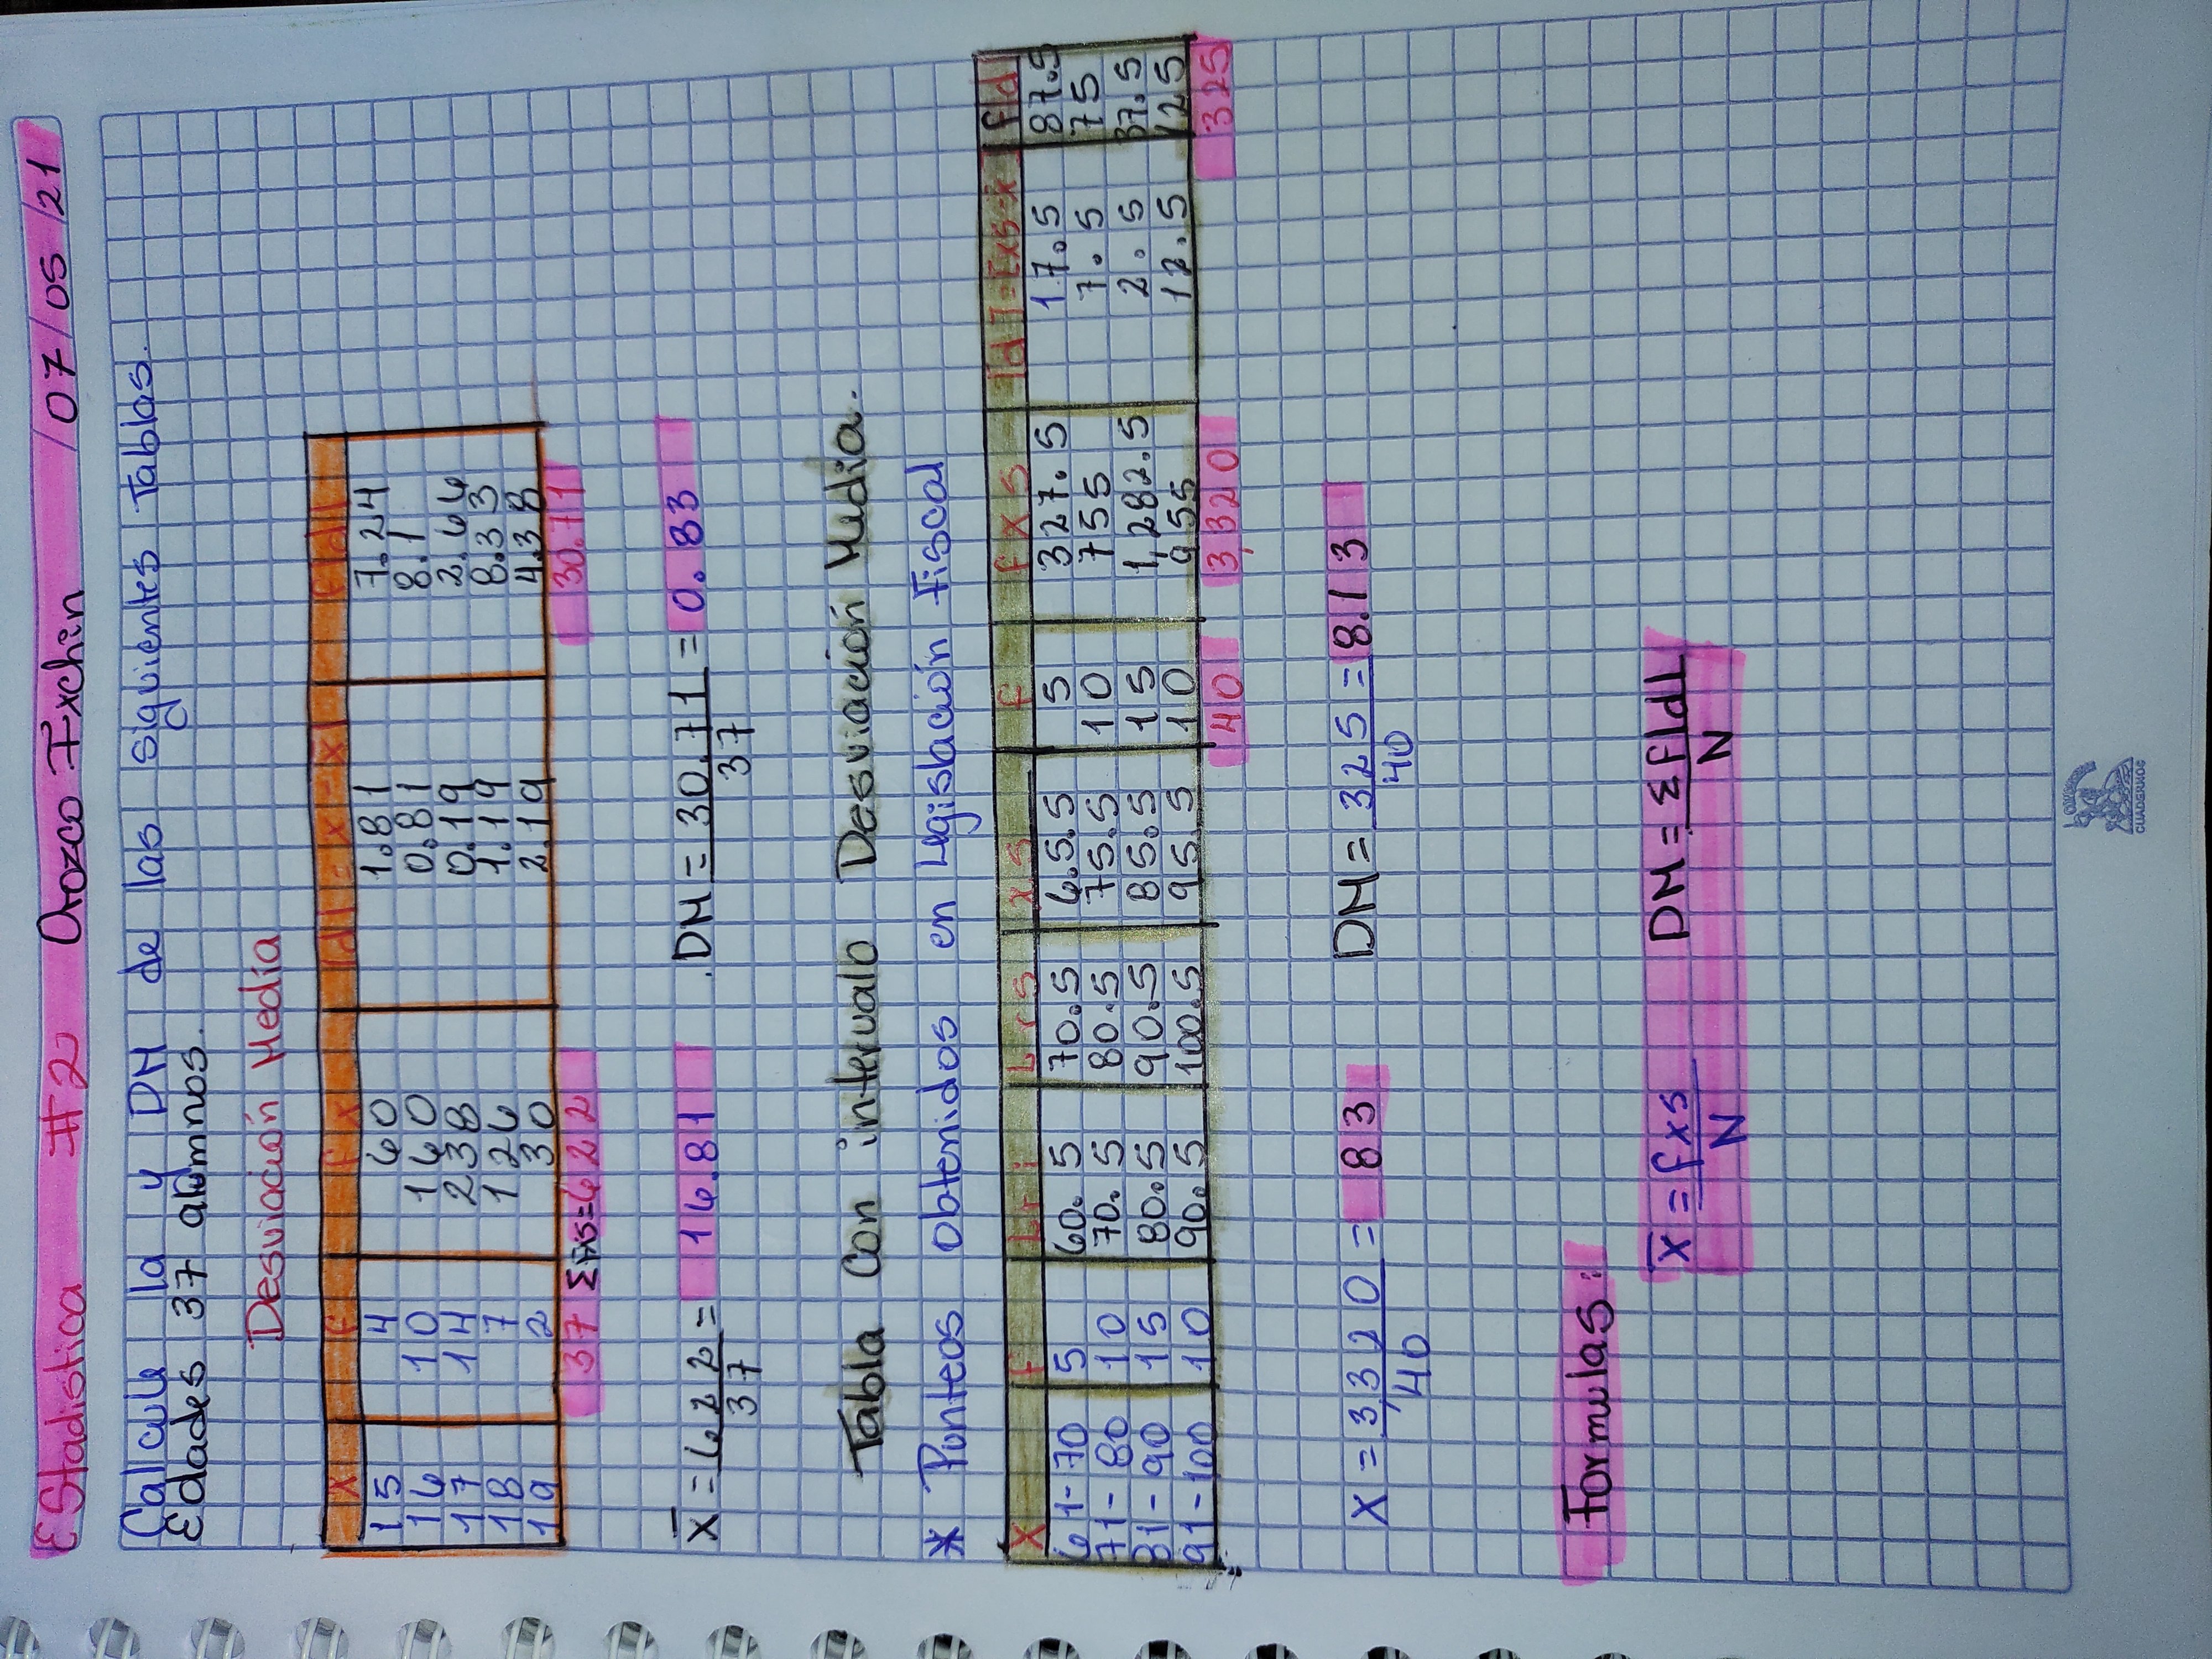 Estadistica #2 Orozco Ixchin /07/05/21
Calcule la y DM de las siguientes Tablas.
Edades 37 alumnos.
Desviación Media
X f fx |d|=x-x f|d|
15 4 60 1.81 7.24
16 10 160 0.81 8.1
17 14 238 0.19 2.66
18 7 126 1.19 8.33
19 2 30 2.19 4.38
37 Σfxs=622 30.71
X̅ = 622/37 = 16.81 .DM = 30.71/37 = 0.83
Tabla Con intervalo Desviación Media.
* Punteos obtenidos en Legislación Fiscal
X f Lri Lrs xs f fxs |d|=[xs-x̅] f|d|
61-70 5 60.5 70.5 65.5 5 327.5 17.5 87.5
71-80 10 70.5 80.5 75.5 10 755 7.5 75
81-90 15 80.5 90.5 85.5 15 1,282.5 2.5 37.5
91-100 10 90.5 100.5 95.5 10 955 12.5 125
40 3,320 325
X = 3,320/40 = 83 DM = 325/40 = 8.13
Formulas:
X̅ = fxs/N DM = Σf|d|/N
CUADERNOS